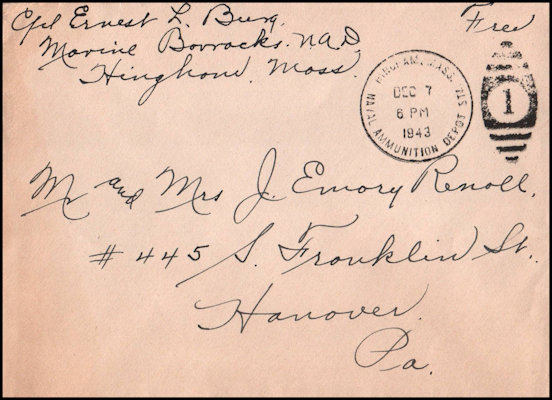 Cpl Ernest L. Burg. Free
Marine Barracks. N.A.D.
Hingham. Mass.
HINGHAM, MASS. STA.
DEC 7
6 PM
1943
NAVAL AMMUNITION DEPOT
1
Mr and Mrs J. Emory Renoll.
# 445 S. Franklin St.
Hanover.
Pa.